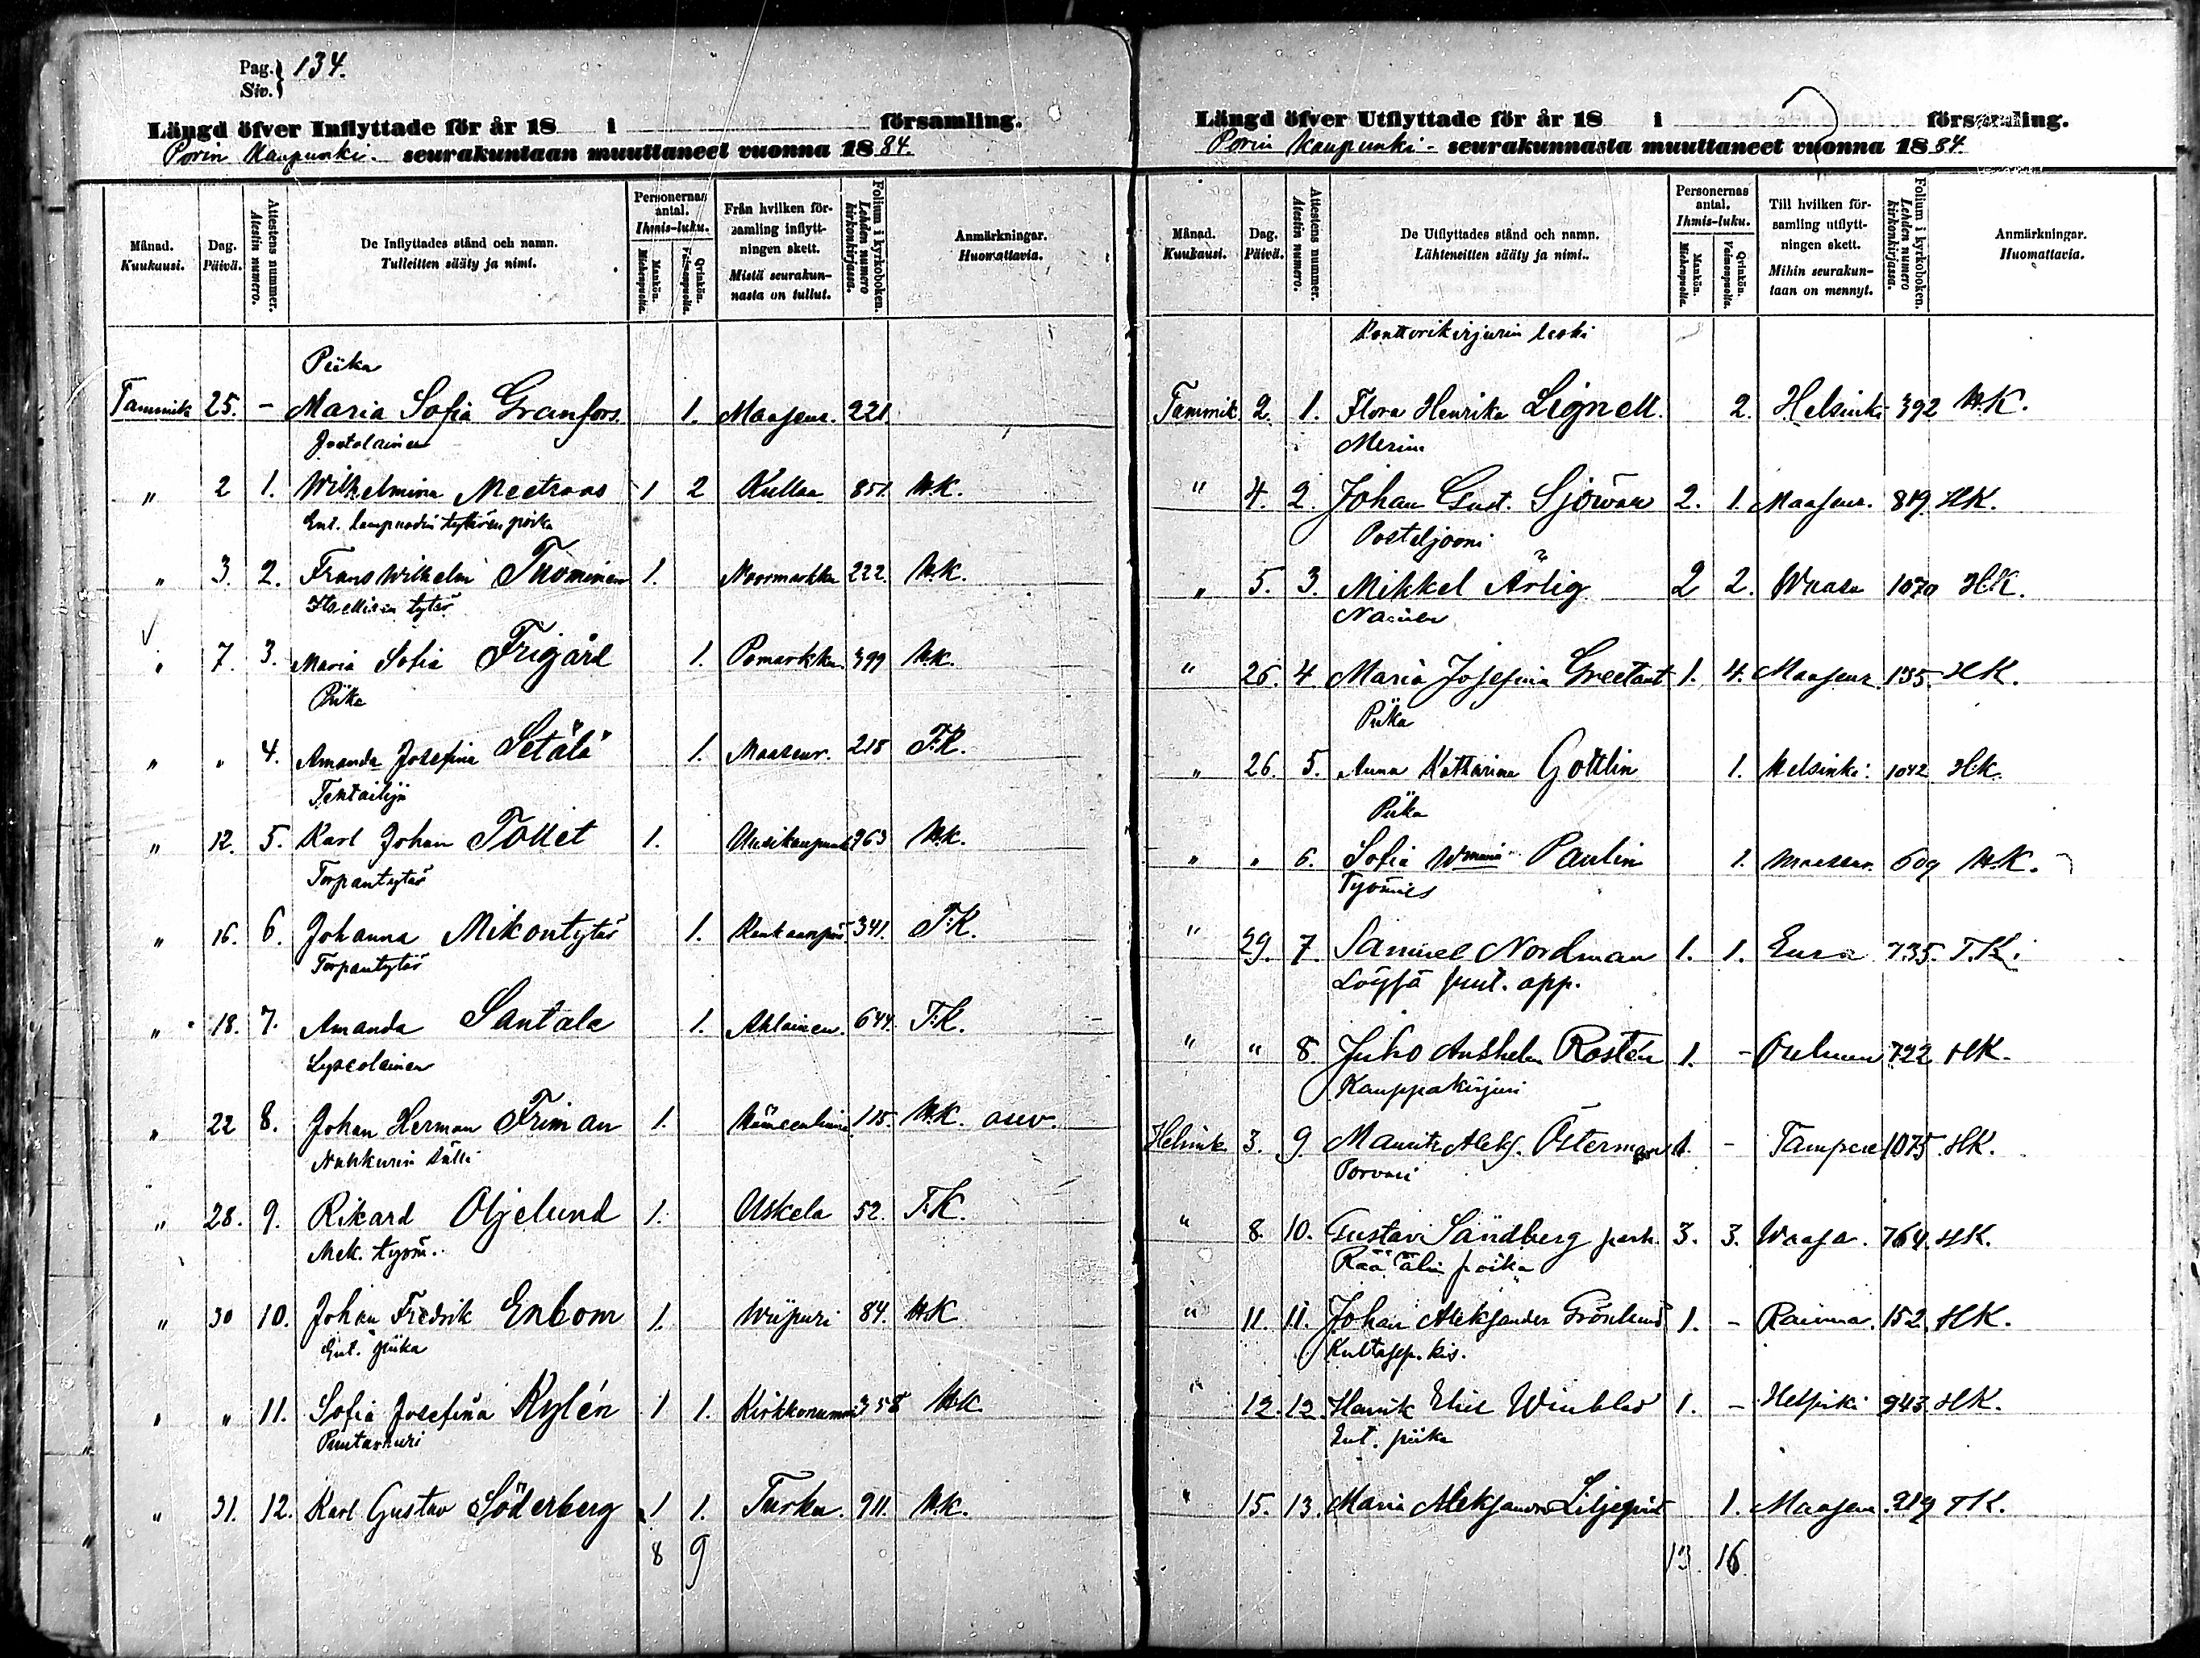 Pag. 134.
Siv.
Längd öfver Inflyttade för år 18 i församling.
Porin Kaupunki. seurakuntaan muuttaneet vuonna 1884.
Månad. Kuukausi.
Dag. Päivä.
Attestens nummer. Atestin numero.
De Inflyttades stånd och namn. Tulleitten sääty ja nimi.
Personernas antal. Ihmis-luku.
Mankön. Miehenpuolia.
Qvinkön. Vaimonpuolia.
Från hvilken församling inflyttningen skett. Mistä seurakunnasta on tullut.
Folium i kyrkoboken. Lehden numero kirkonkirjassa.
Anmärkningar. Huomattavia.
Piika
Tammik 25. - Maria Sofia Granfors. 1. Maaseur. 221.
Itsellinen
" 2 1. Wilhelmina Meetraas 1 2 Kullaa 851. H.K.
Ent. tyttären poika
" 3. 2. Frans Wilhelm Tuominen 1. Noormarkku 222. H.K.
Itsellisen tytär
" 7. 3. Maria Sofia Frigård 1. Pomarkku 399 H.K.
Piika
" " 4. Amanda Josefina Setälä 1. Maaseur. 218 T.K.
Tehtailija
" 12. 5. Karl Johan Tollet 1. Uusikaupunki 763 H.K.
Torpantytär
" 16. 6. Johanna Mikontytär 1. Kankaanpää 341. T.K.
Torpantytär
" 18. 7. Amanda Santala 1. Ahlainen. 644. T.K.
Lyseolainen
" 22 8. Johan Herman Friman 1. Hämeenlinna 115. H.K. asev.
Nahkurin källi
" 28. 9. Rikard Oljelund 1. Uskela 52. T.K.
Mek. työm.
" 30 10. Johan Fredrik Enbom 1. Wiipuri 84. H.K
Ent. piika
" " 11. Sofia Josefina Kylén 1 1. Kirkkonummi 358 H.K
Puutarhuri
" 31. 12. Karl Gustav Söderberg 1 1. Turku. 911. H.K.
8 9
Längd öfver Utflyttade för år 18 i församling.
Porin Kaupunki - seurakunnasta muuttaneet vuonna 1884.
Månad. Kuukausi.
Dag. Päivä.
Attestens nummer. Atestin numero.
De Utflyttades stånd och namn. Lähteneitten sääty ja nimi.
Personernas antal. Ihmis-luku.
Mankön. Miehenpuolia.
Qvinkön. Vaimonpuolia.
Till hvilken församling utflyttningen skett. Mihin seurakuntaan on mennyt.
Folium i kyrkoboken. Lehden numero kirkonkirjassa.
Anmärkningar. Huomattavia.
Konttorikirjurin leski
Tammik 2. 1. Flora Henrika Lignell. 2. Helsinki 392 H.K.
Merim
" 4. 2. Johan Gust. Sjöwar 2. 1. Maaseur. 819. H.K.
Posteljooni
" 5. 3. Mikkel Ärlig 2 2. Waasa 1070 H.K.
Nainen
" 26. 4. Maria Josefina Greetant 1. 4. Maaseur. 135. H.K.
Piika
" 26. 5. Anna Kattarina Gottlin 1. Helsinki. 1042 H.K.
Piika
" " 6. Sofia Wmina Paulin 1. Maaseur. 609 H.K.
Työmies
" 29. 7. Samuel Nordman 1. 1. Eura 735. T.K.
Löysä app.
" " 8 Juho Anshelm Rostén 1. - Oulunn 722 H.K.
Kauppakirjuri
Helmik. 3. 9. Mauritz Aleks. Österman 1. - Tampere 1075 H.K.
Porvari
" 8. 10. Gustav Sandberg perh. 3. 3. Waasa. 764. H.K.
Räätälin poika
" 11. 11. Johan Aleksander Grönlund 1. - Rauma. 152. H.K.
Kultasep. kis.
" 12. 12. Henrik Elis Winblad 1. - Helsinki 943. H.K.
Ent. piika
" 15. 13. Maria Aleksandra Liljeqvist 1. Maaseur. 219 T.K.
13 16